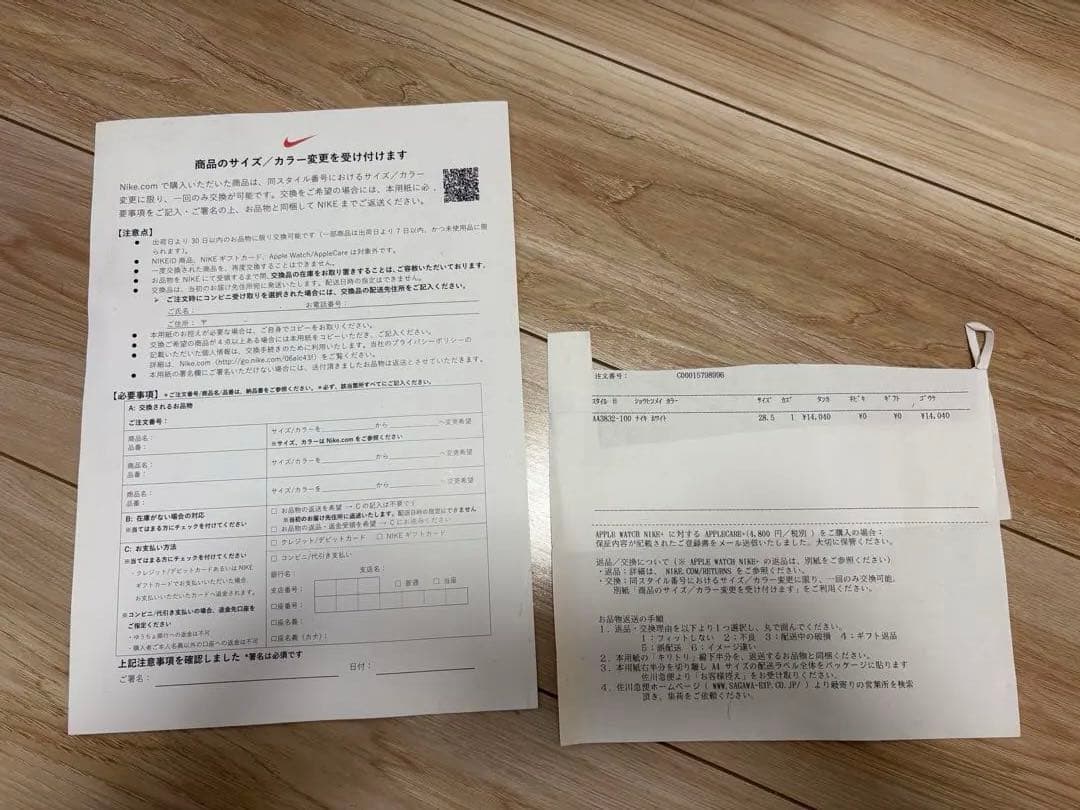 商品のサイズ／カラー変更を受け付けます
Nike.com で購入いただいた商品は、同スタイル番号におけるサイズ／カラー
変更に限り、一回のみ交換が可能です。交換をご希望の場合には、本用紙に必
要事項をご記入・ご署名の上、お品物と同梱して NIKE までご返送ください。
【注意点】
● 出荷日より 30 日以内のお品物に限り交換可能です（一部商品は出荷日より 7 日以内、かつ未使用品に限
られます）。
● NIKEiD 商品、NIKE ギフトカード、Apple Watch/AppleCare は対象外です。
● 一度交換された商品を、再度交換することはできません。
● お品物を NIKE にて受領するまで間、交換品の在庫をお取り置きすることは、ご容赦いただいております。
● 交換品は、当初のお届け先住所宛に発送いたします。配送日時の指定はできません。
➢ ご注文時にコンビニ受け取りを選択された場合には、交換品の配送先住所をご記入ください。
ご氏名： お電話番号：
ご住所：〒 -
● 本用紙のお控えが必要な場合は、ご自身でコピーをお取りください。
● 交換ご希望の商品が 4 点以上ある場合には本用紙をコピーいただき、ご記入ください。
● 記載いただいた個人情報は、交換手続きのために利用いたします。当社のプライバシーポリシーの
詳細は、Nike.com（http://go.nike.com/06alc43f）をご覧ください。
● 本用紙の署名欄にご署名いただけない場合には、送付頂きましたお品物は返送とさせていただきます。
【必要事項】＊ご注文番号/商品名/品番は、納品書をご参照ください。＊必ず、該当箇所すべてにご記入ください。
A: 交換されるお品物
ご注文番号：
商品名： サイズ/カラーを から へ変更希望
品番： ※サイズ、カラーは Nike.com をご参照ください
商品名： サイズ/カラーを から へ変更希望
品番：
商品名： サイズ/カラーを から へ変更希望
品番：
B: 在庫がない場合の対応
※当てはまる方にチェックを付けてください
□ お品物の返送を希望 → C の記入は不要です
※当初のお届け先住所に返送いたします。配送日時の指定はできません
□ お品物の返品・返金受領を希望 → C にお進みください
C: お支払い方法
※当てはまる方にチェックを付けてください
・クレジット/デビットカードあるいは NIKE
ギフトカードでお支払いいただいた場合、
お支払いいただいたカードへ返金されます。
※コンビニ/代引き支払いの場合、返金先口座を
ご指定ください
・ゆうちょ銀行への返金は不可
・購入者ご本人名義以外の口座への返金は不可
□ クレジット/デビットカード □ NIKE ギフトカード
□ コンビニ/代引き支払い
銀行名： 支店名：
支店番号： □ 普通 □ 当座
口座番号：
口座名義：
口座名義（カナ）：
上記注意事項を確認しました *署名は必須です
ご署名： 日付：
注文番号： C00015798996
スタイル ID ショウヒンメイ カラー サイズ カズ タンカ ネビキ ギフト ゴウケ
AA3832-100 ナイキ ホワイト 28.5 1 ¥14,040 ¥0 ¥0 ¥14,040
APPLE WATCH NIKE+ に対する APPLECARE+(4,800 円／税別）をご購入の場合：
保証内容が記載されたご登録書をメール送信いたしました。大切に保管ください。
返品／交換について（※ APPLE WATCH NIKE+ の返品は、別紙をご参照ください。
・返品：詳細は、NIKE.COM/RETURNS をご参照ください。
・交換：同スタイル番号におけるサイズ／カラー変更に限り、一回のみ交換可能。
別紙「商品のサイズ／カラー変更を受け付けます」をご利用ください。
お品物返送の手順
１．返品・交換理由を以下より１つ選択し、丸で囲んでください。
１：フィットしない ２：不良 ３：配送中の破損 ４：ギフト返品
５：誤配送 ６：イメージ違い
２．本用紙の「キリトリ」線下半分を、返送するお品物と同梱ください。
３．本用紙右半分を切り離し A4 サイズの配送ラベル全体をパッケージに貼ります
佐川急便より「お客様控え」をお受け取りください。
４．佐川急便ホームページ（ WWW.SAGAWA-EXP.CO.JP/ ）より最寄りの営業所を検索
頂き、集荷をご依頼ください。